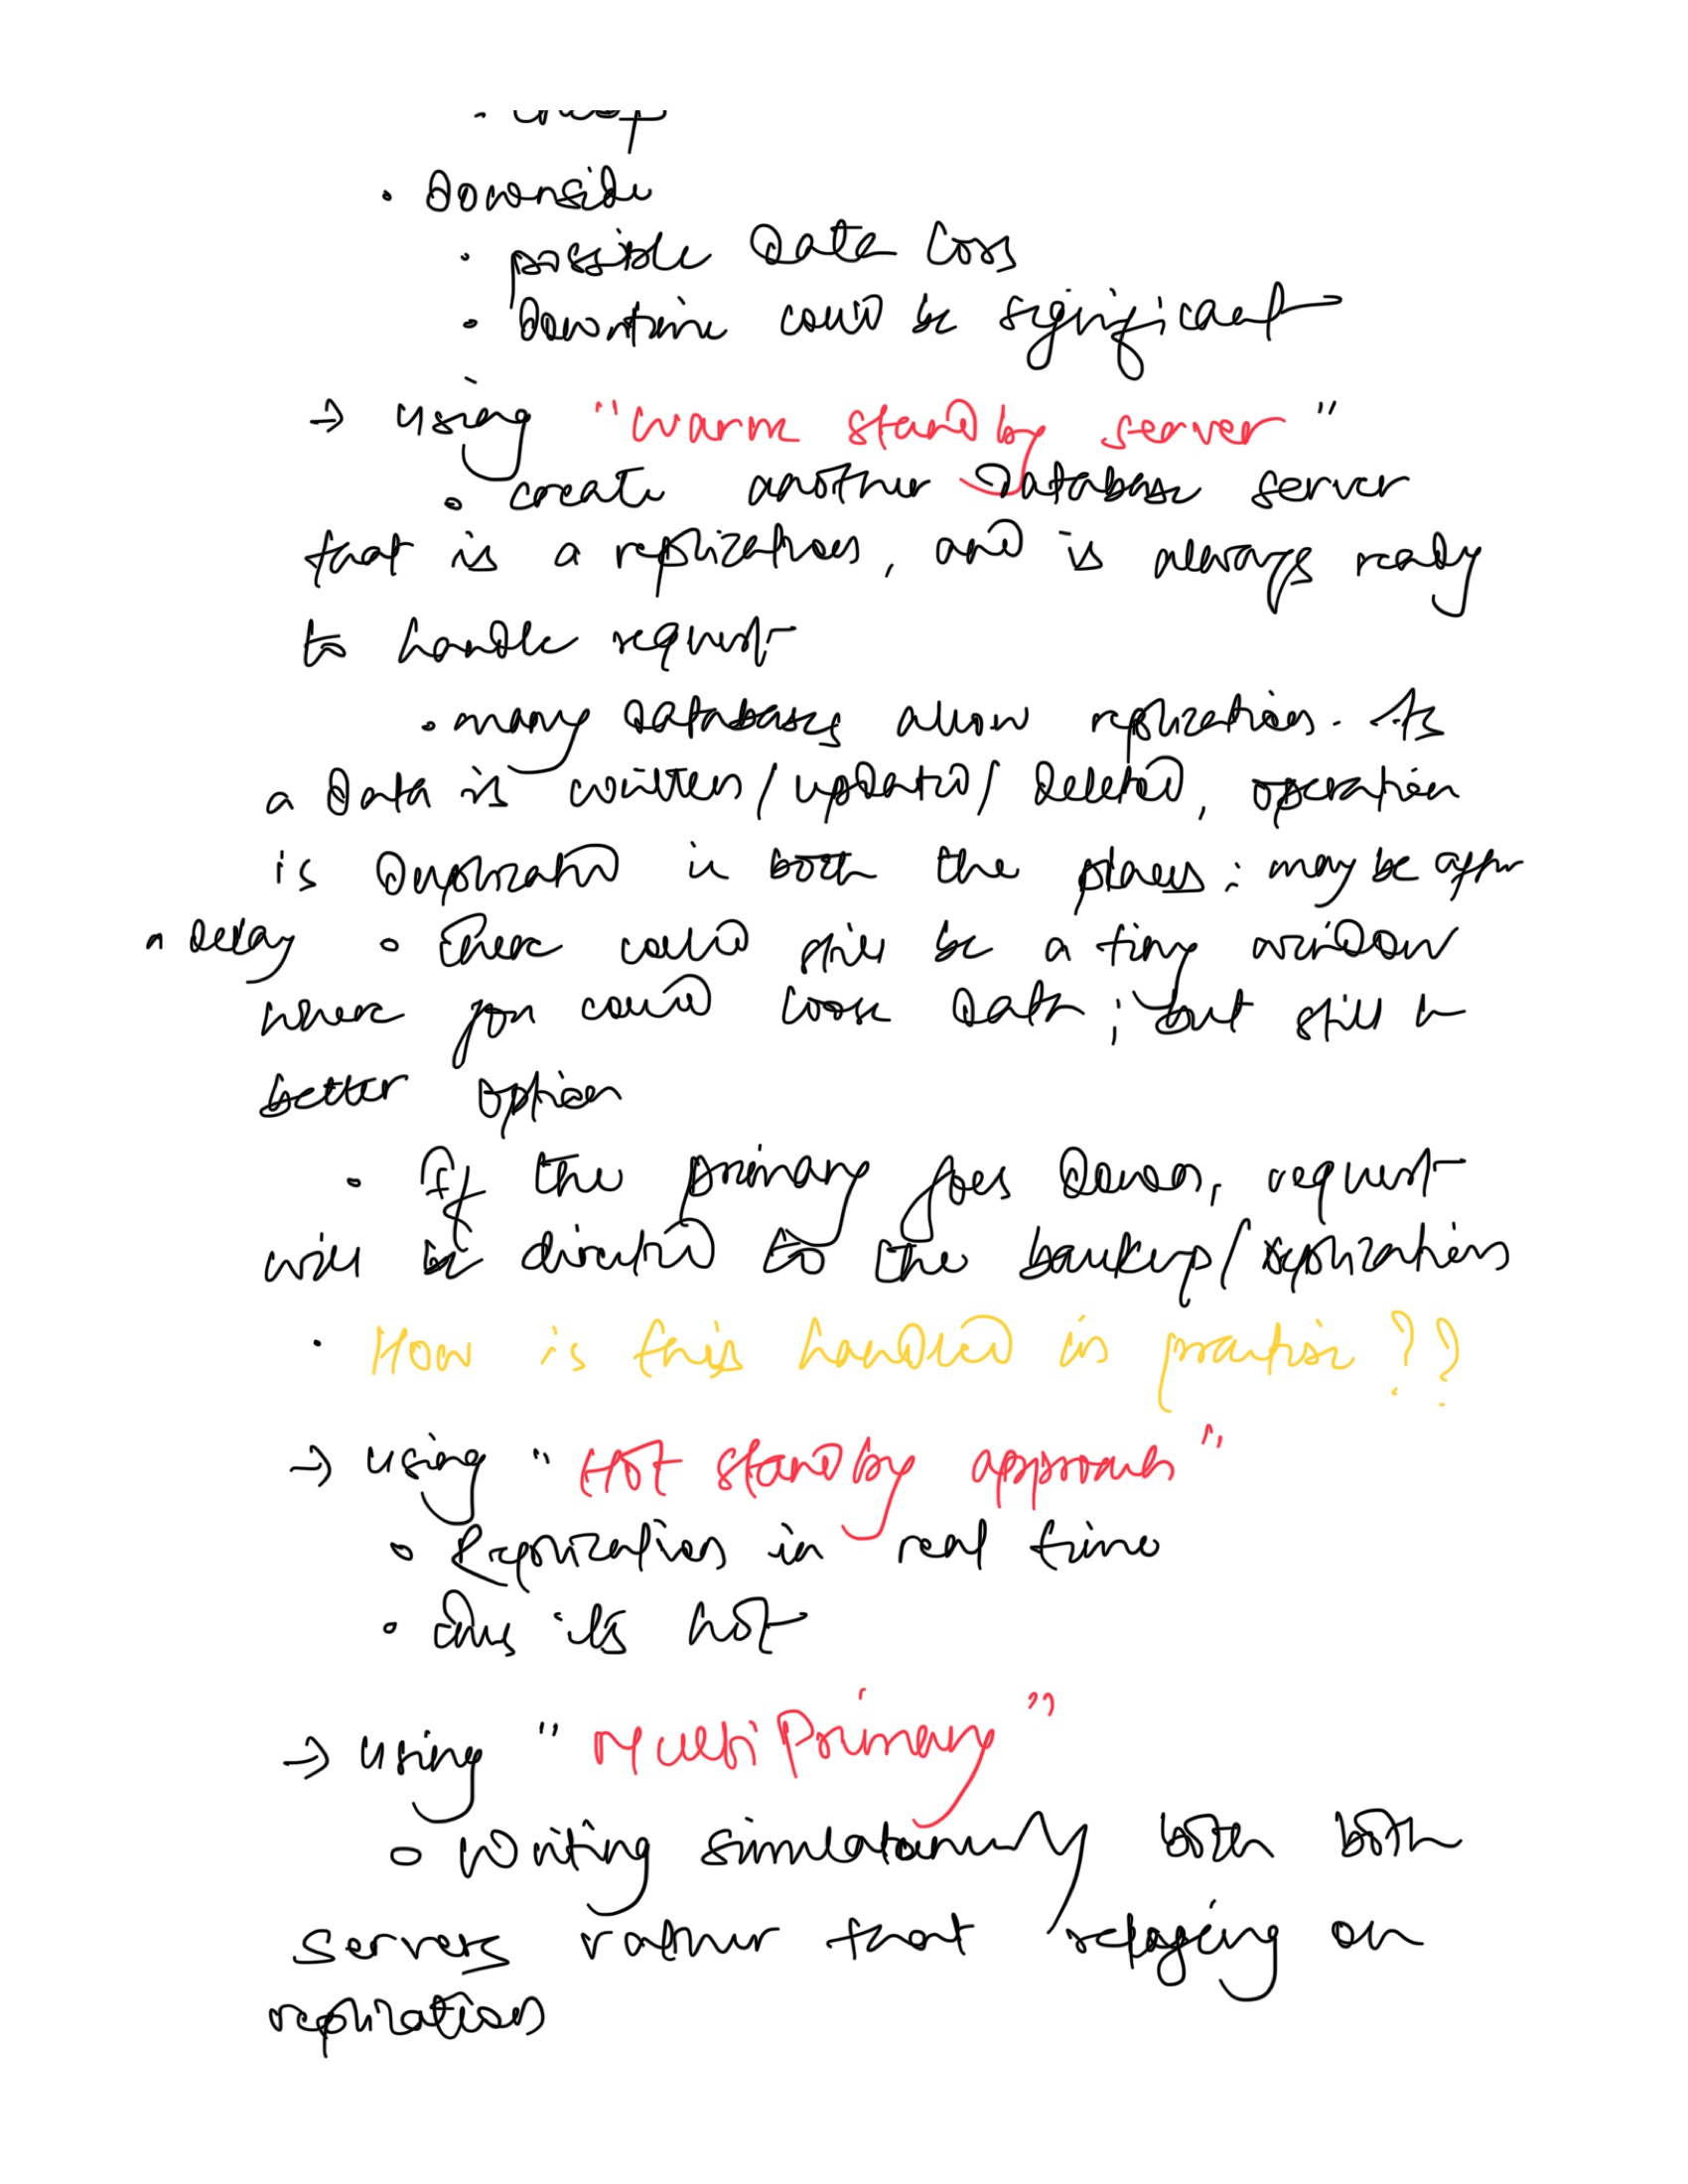 · Downside
· possible Data loss
· Downtime could be significant
→ using "warm stand by server"
· create another Database server
that is a replication, and is always ready
to handle request
· many databases allow replication. As
a data is written/updated/deleted, operation
is Duplicated in both the places: may be after
a delay · There could still be a tiny window
where you could loose Data; but still a
better option
· If the primary goes Down, request
will be directed to the backup/replications
· How is this handled in practise ??
→ using "Hot stand by approach"
· Replication in real time
· Thus its hot
→ using "Multi Primary"
· Writing simulatanously both both
servers rather that relaying on
replication